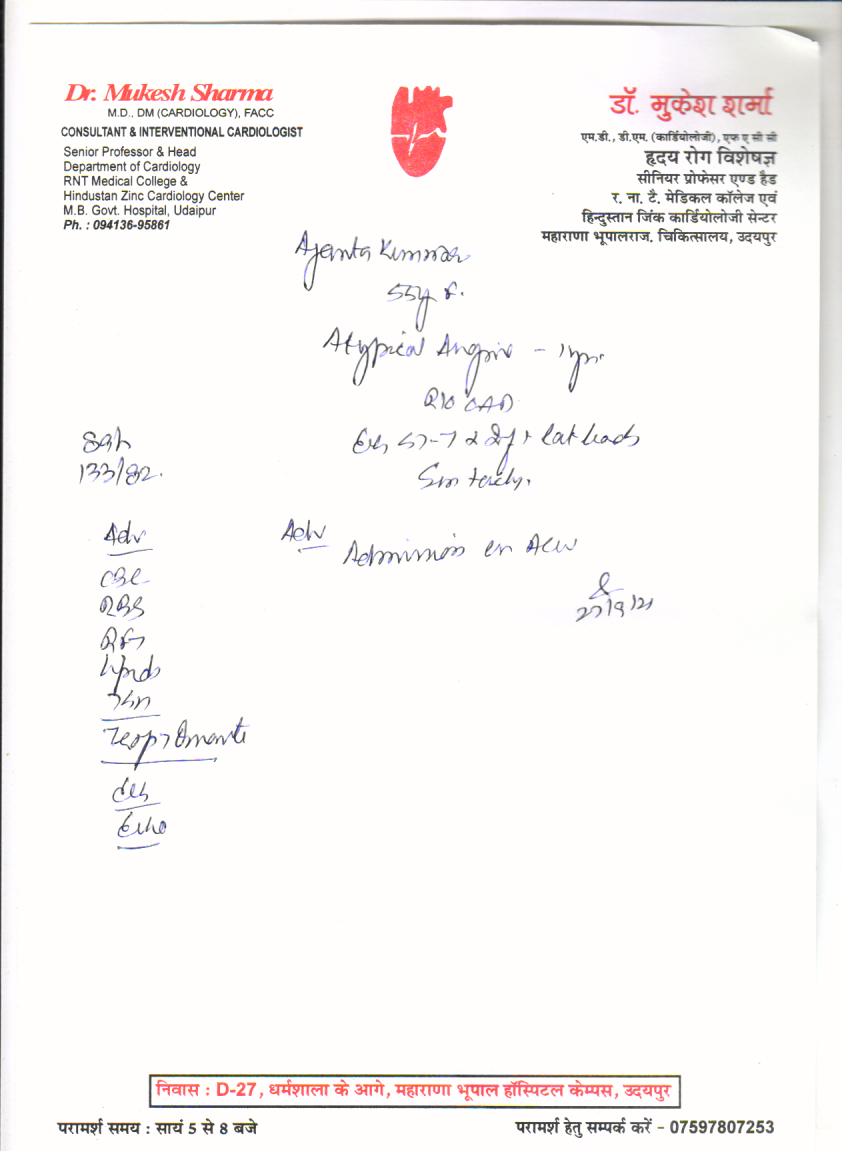 Dr. Mukesh Sharma
M.D., DM (CARDIOLOGY), FACC
CONSULTANT & INTERVENTIONAL CARDIOLOGIST
Senior Professor & Head
Department of Cardiology
RNT Medical College &
Hindustan Zinc Cardiology Center
M.B. Govt. Hospital, Udaipur
Ph. : 094136-95861
डॉ. मुकेश शर्मा
एम.डी., डी.एम. (कार्डियोलोजी), एफ ए सी सी
हृदय रोग विशेषज्ञ
सीनियर प्रोफेसर एण्ड हैड
र. ना. टै. मेडिकल कॉलेज एवं
हिन्दुस्तान जिंक कार्डियोलोजी सेन्टर
महाराणा भूपालराज. चिकित्सालय, उदयपुर
Ajanta Kumar
55y
Atypical Angina -
R/o CAD
lat leads
133/82.
Adv
CBC
RBS
RFT
Lipids
Echo
Adv
Admission in
निवास : D-27, धर्मशाला के आगे, महाराणा भूपाल हॉस्पिटल केम्पस, उदयपुर
परामर्श समय : सायं 5 से 8 बजे
परामर्श हेतु सम्पर्क करें - 07597807253